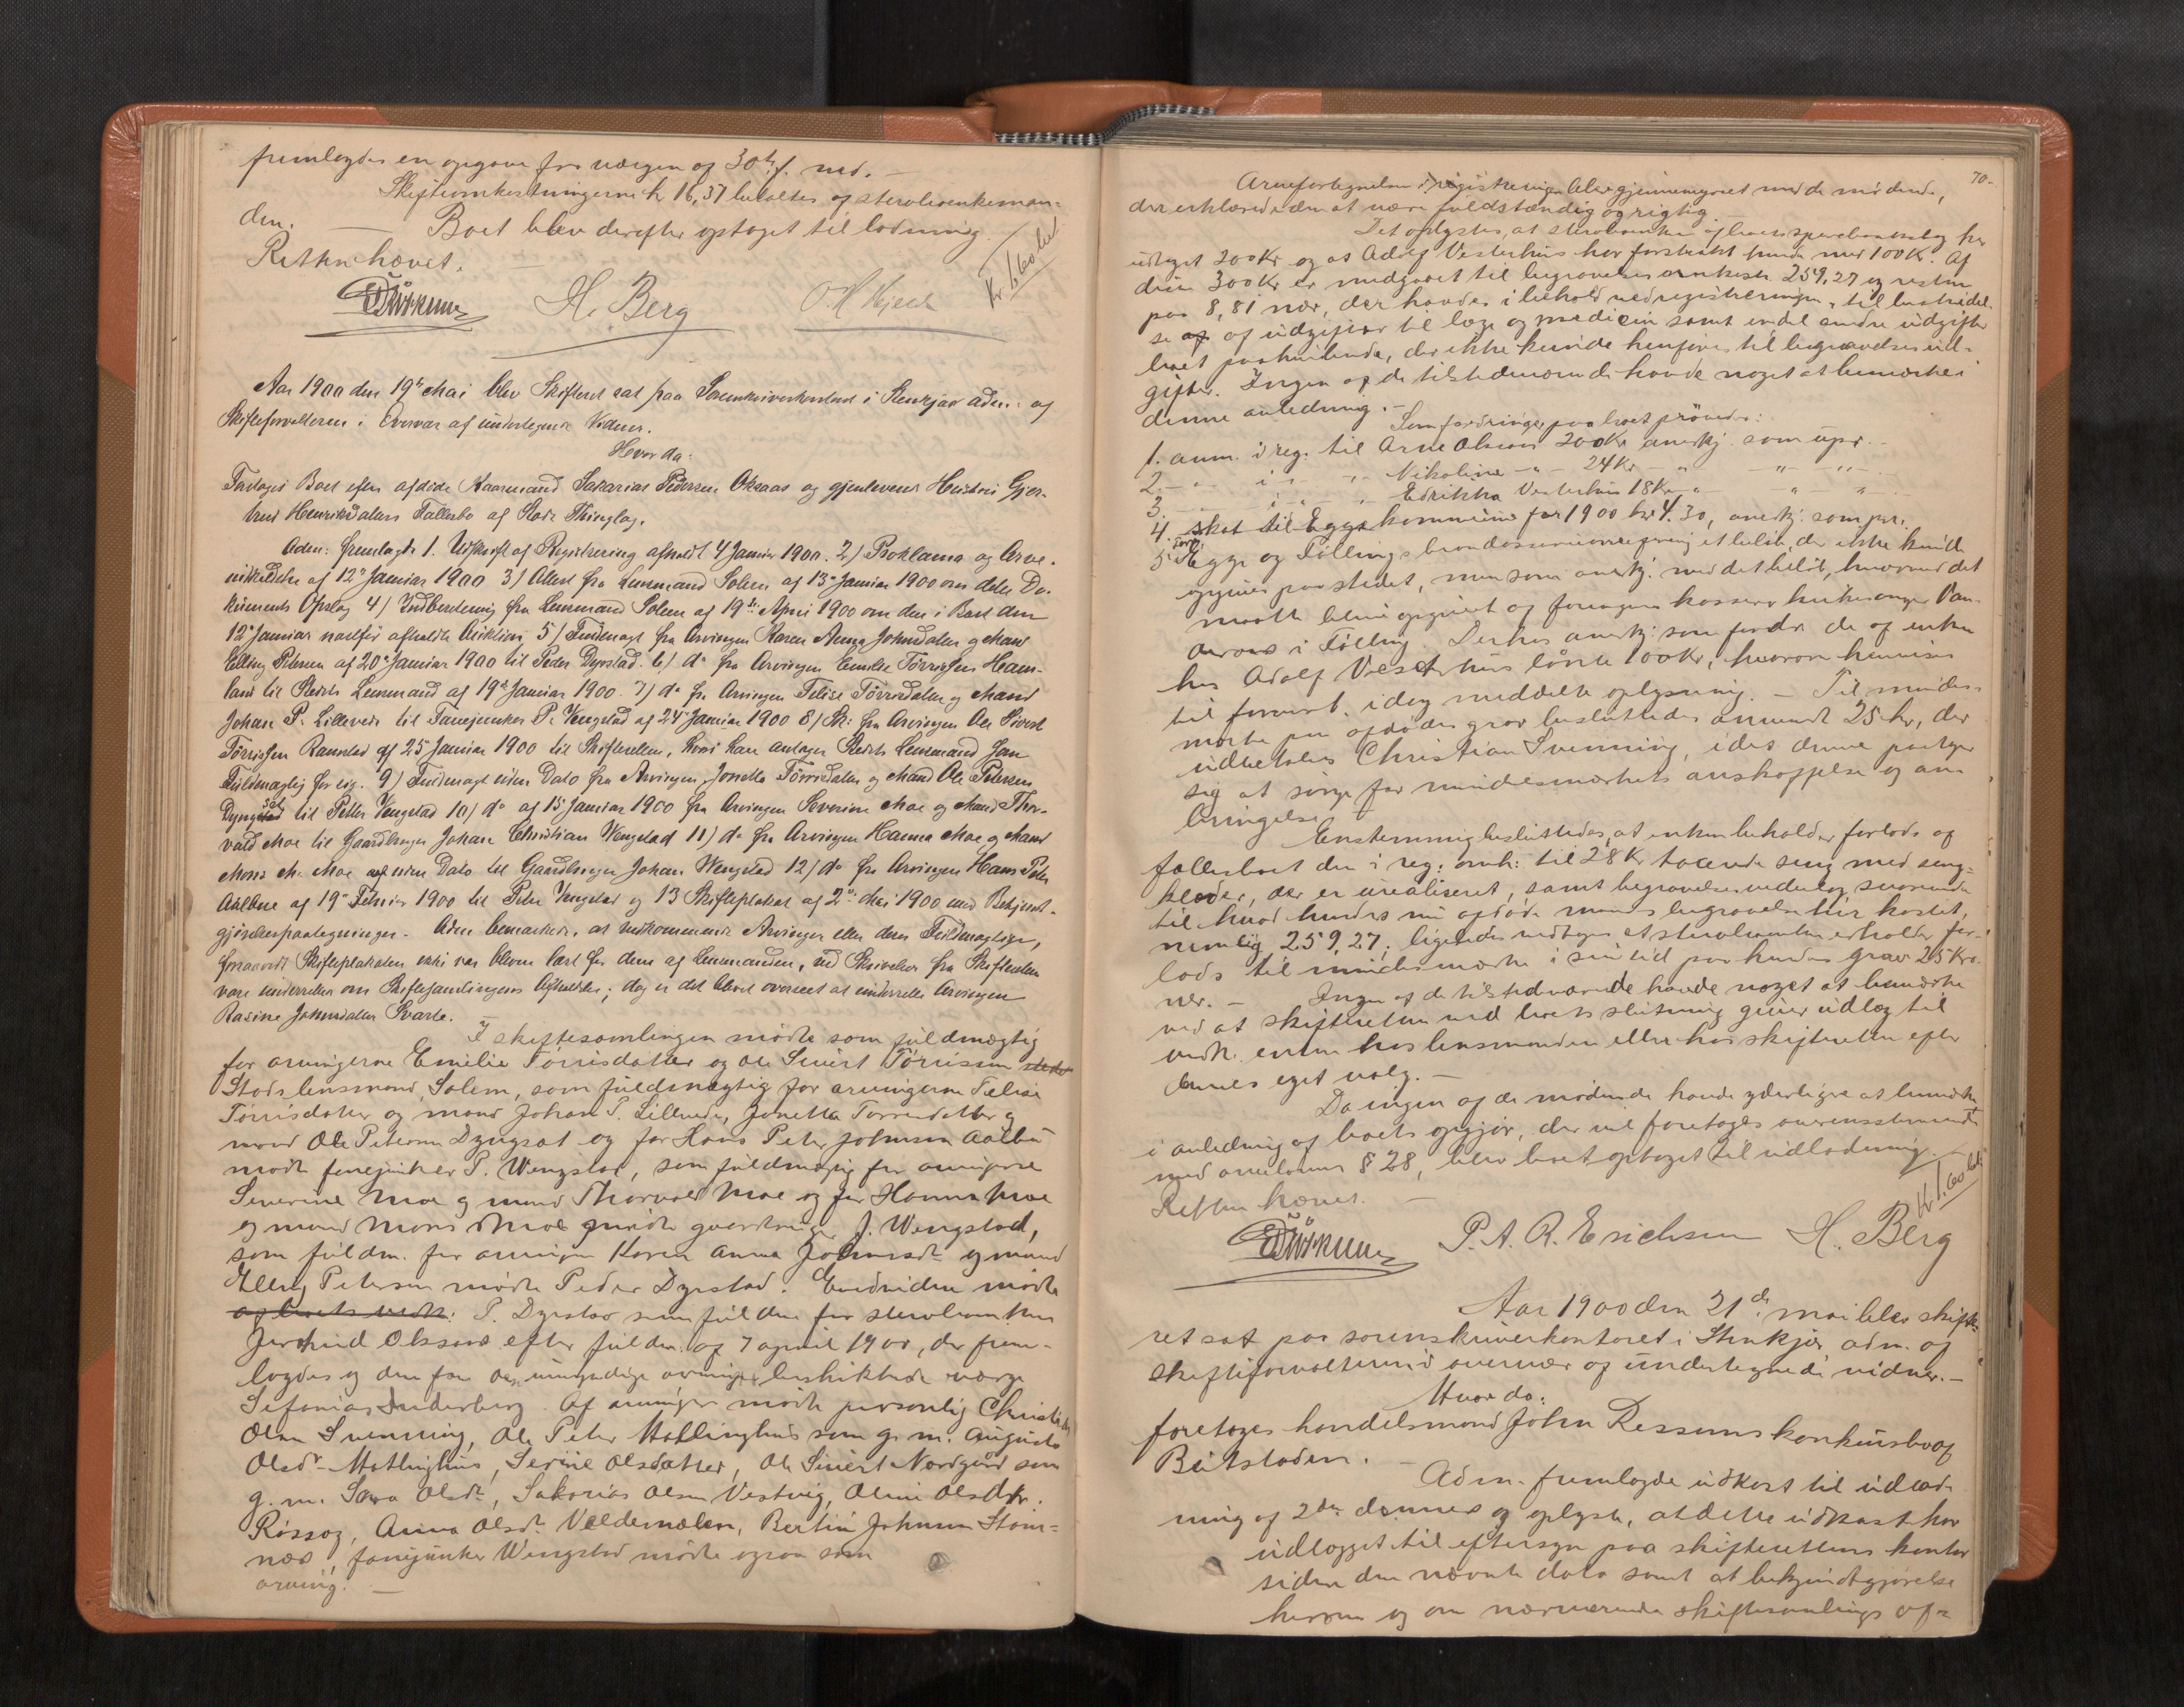 fremlagdes en opgave fra værgen og 30te f. md. –
Skifteomkostningerne kr 16,37 betaltes af sterbo
den. – Boet blev derefter optaget til lodning.
Retten hævet.
H. Berg
O. H. Kjech
Kr 1.60 bet
Aar 1900 den 19de Mai blev Skifteret sat paa Sorenskriverkontoret i Stenkjær adm: af
Skifteforvalteren i Overvær af undertegnede Vidner.
Hvorda:
Foretoges Boet efter afdøde Kaarmand Sakarias Pedersen Oksaas og gjenlevende Hustru Gjer-
trud Henriksdatters Fællesbo af Stods Thinglag.
Adm: fremlagde 1. Udskrift af Registrering afholdt 4 Januar 1900. 2) Proklama og Arve-
indkaldelse af 12te Januar 1900 3) Attest fra Lensmand Solem af 13de Januar 1900 om dette Do-
kuments Opslag 4) Indberetning fra Lensmand Solem af 19de April 1900 om den i Boet den
12te Januar næstfør afholdte Auktion 5) Fuldmagt fra Arvingen Karen Anna Johnsdatter og Mand
Elling Petersen af 20de Januar 1900 til Peder Dyrstad. 6) do fra Arvingen Emilie Tørrissen Ham-
land til Stedets Lensmand af 19de Januar 1900. 7) do fra Arvingen Felise Tørrisdatter og Mand
Johan P. Lillevede til Fanejunker P. Vengstad af 24de Januar 1900 8) Sk: fra Arvingen Ole Sivert
Tørrissen Ramstad af 25 Januar 1900 til Skifteretten, hvori han antager Stedets Lensmand som
Fuldmægtig for sig. 9) Fuldmagt uden Dato fra Arvingen Jonetta Tørrisdatter og Mand Ole Petersen
til Petter Vengstad 10) do af 15 Januar 1900 fra Arvingen Severine Moe og Mand Thor-
vald Moe til Gaardbruger Johan Christian Wengstad 11) do fra Arvingen Hanna Moe og Mand
Mons M. Moe uden Dato til Gaardbruger Johan Wengstad 12) do fra Arvingen Hans Peter
Aalbue af 19de Februar 1900 til Peter Vengstad og 13 Skifteplakat af 2den Mai 1900 med Bekjendt-
gjørelsespaategninger. Adm: bemærkede, at vedkommende Arvinger eller deres Fuldmægtige,
forsaavidt Skifteplakaten ikke var bleven læst for dem af Lensmanden, ved Skrivelser fra Skifteretten
vare underrettede om Skiftesamlingens Afholdelse; dog er det blevet overseet at underrette Arvingen
Rasine Johnsdatter Svarte.
I skiftesamlingen mødte som fuldmægtig
for arvingerne Emilie Tørrisdatter og Ole Sivert Tørrissen
Stods lensmand Solem, som fuldmægtig for arvingerne Felise
Tørrisdatter og mand Johan P. Lillevede, Jonetta Torrisdatter og
mand Ole Petersen og for Hans Peter Johnsen Aalbu
mødte fanejunker P. Wengstad, som fuldmægtig for arvingerne
Severine Moe og mand Thorvald Moe og for Hanna Moe
og mand Mons Moe mødte gaardbruger J. Wengstad,
som fuldm. for arvingen Karen Anna Johnsdtr og mand
Elling Petersen mødte Peder Dyrstad. Endvidere mødte
P. Dyrstad som fuldm for sterboenken
efter fuldm. af 7 april 1900, der frem-
lagdes og den for de umyndige arvinger beskikkede værge
Sefanias Enderberg. Af arvinger mødte personlig Christian
Olsen Svenning, Ole Peter Møllinghus som g. m. Augusta
Olsdr Møllinghus, Serine Olsdatter, Ole Sivert Nordgård som
g. m. Sara Olsdr, Sakarias Olsen Vestvig, Oline Olsdtr.
Røssog, Anna Olsdr Veldemælen, Bertin Johnsen Stam-
næs, fanejunker Wengstad mødte ogsaa som
arving. –
70.
Arvefortegnelsen i registreringen blev gjennemgaaet med de mødende,
der erklærede den at være fuldstændig og rigtig.
Det oplystes, at sterboenken af boets sparebankbog har
udtaget 200 Kr og at Adolf Vesterhus har forstrakt hende med 100 K. Af
disse 300 Kr er medgaaet til begravelsesomkostn. 259,27 og resten
paa 8,81 nær, der havdes i behold ved registreringen, til bestridel-
se af udgifter til læge og medicin samt endel andre udgifter
boet paahvilende, der ikke kunde henføres til begravelsesud-
gifter. Ingen af de tilstedeværende havde noget at bemærke i
denne anledning. –
Som fordringer paa boet prøvedes:
1. anm. i reg. til Arne Olssen 200 Kr anerkj. som upr. –
2. – " – i – " – " Nikoline – " – 24 Kr – " – " – " –
3. – " – i – " – " Edrikka Vesterhus 18 Kr – " – " – " –
4. skat til Egge kommune for 1900 kr 4.30, anerkj. som pr.
5. Egge og Føllings brandassuranceforening et beløb, der ikke kunde
opgives paa stedet, men som anerkj. med det beløb, hvormed det
maatte blive opgivet af foreningens kasserer
i Følling. Derhos anerkj. som fordr. de af enken
hos Adolf Vesterhus lånte 100 Kr, hvorom hennes
idag meddelte oplysning. – Til mindes-
mærke paa afdødes grav besluttedes anvendt 25 kr, der
udbetales Christian Svenning, idet denne paatager
sig at sørge for mindesmærkets anskaffelse og an-
bringelse.
Enstemmig besluttedes, at enken beholder forlods af
fællesboet den i reg. omh: til 28 Kr taxerede seng med seng-
klæder, der er urealiseret, samt begravelsesvederlag svarende
til hvad hendes nu afdøde mands begravelse har kostet,
nemlig 259,27; ligeledes vedtoges at sterboenken erholder for-
lods til mindesmærke i sin tid paa hendes grav 25 Kro-
ner. – Ingen af de tilstedeværende havde noget at bemærke
ved at skifteretten ved boets slutning giver udlæg til
vedk. enten hos lensmanden eller hos skifteretten efter
dennes eget valg. –
Da ingen af de mødende havde yderligere at bemærke
i anledning af boets opgjør, der vil foretages overensstemmende
med arvelovens § 28, blev boet optaget til udlodning.
Retten hævet. –
Kr 1.60 bet
P. A. R. Erichsen
H. Berg
Aar 1900 den 21de mai blev skifte-
ret sat paa sorenskriverkontoret i Stenkjær, adm. af
skifteforvalteren i overvær af undertegnede vidner. –
Hvorda:
foretoges handelsmand John Ressems konkursbo af
Beitstaden. –
Adm. fremlagde udkast til udlod-
ning af 2den dennes og oplyste, at dette udkast har
udlagget til eftersyn paa skifterettens kontor
siden den nævnte dato samt at bekjendtgjørelse
herom og om nærværende skiftesamlings af-